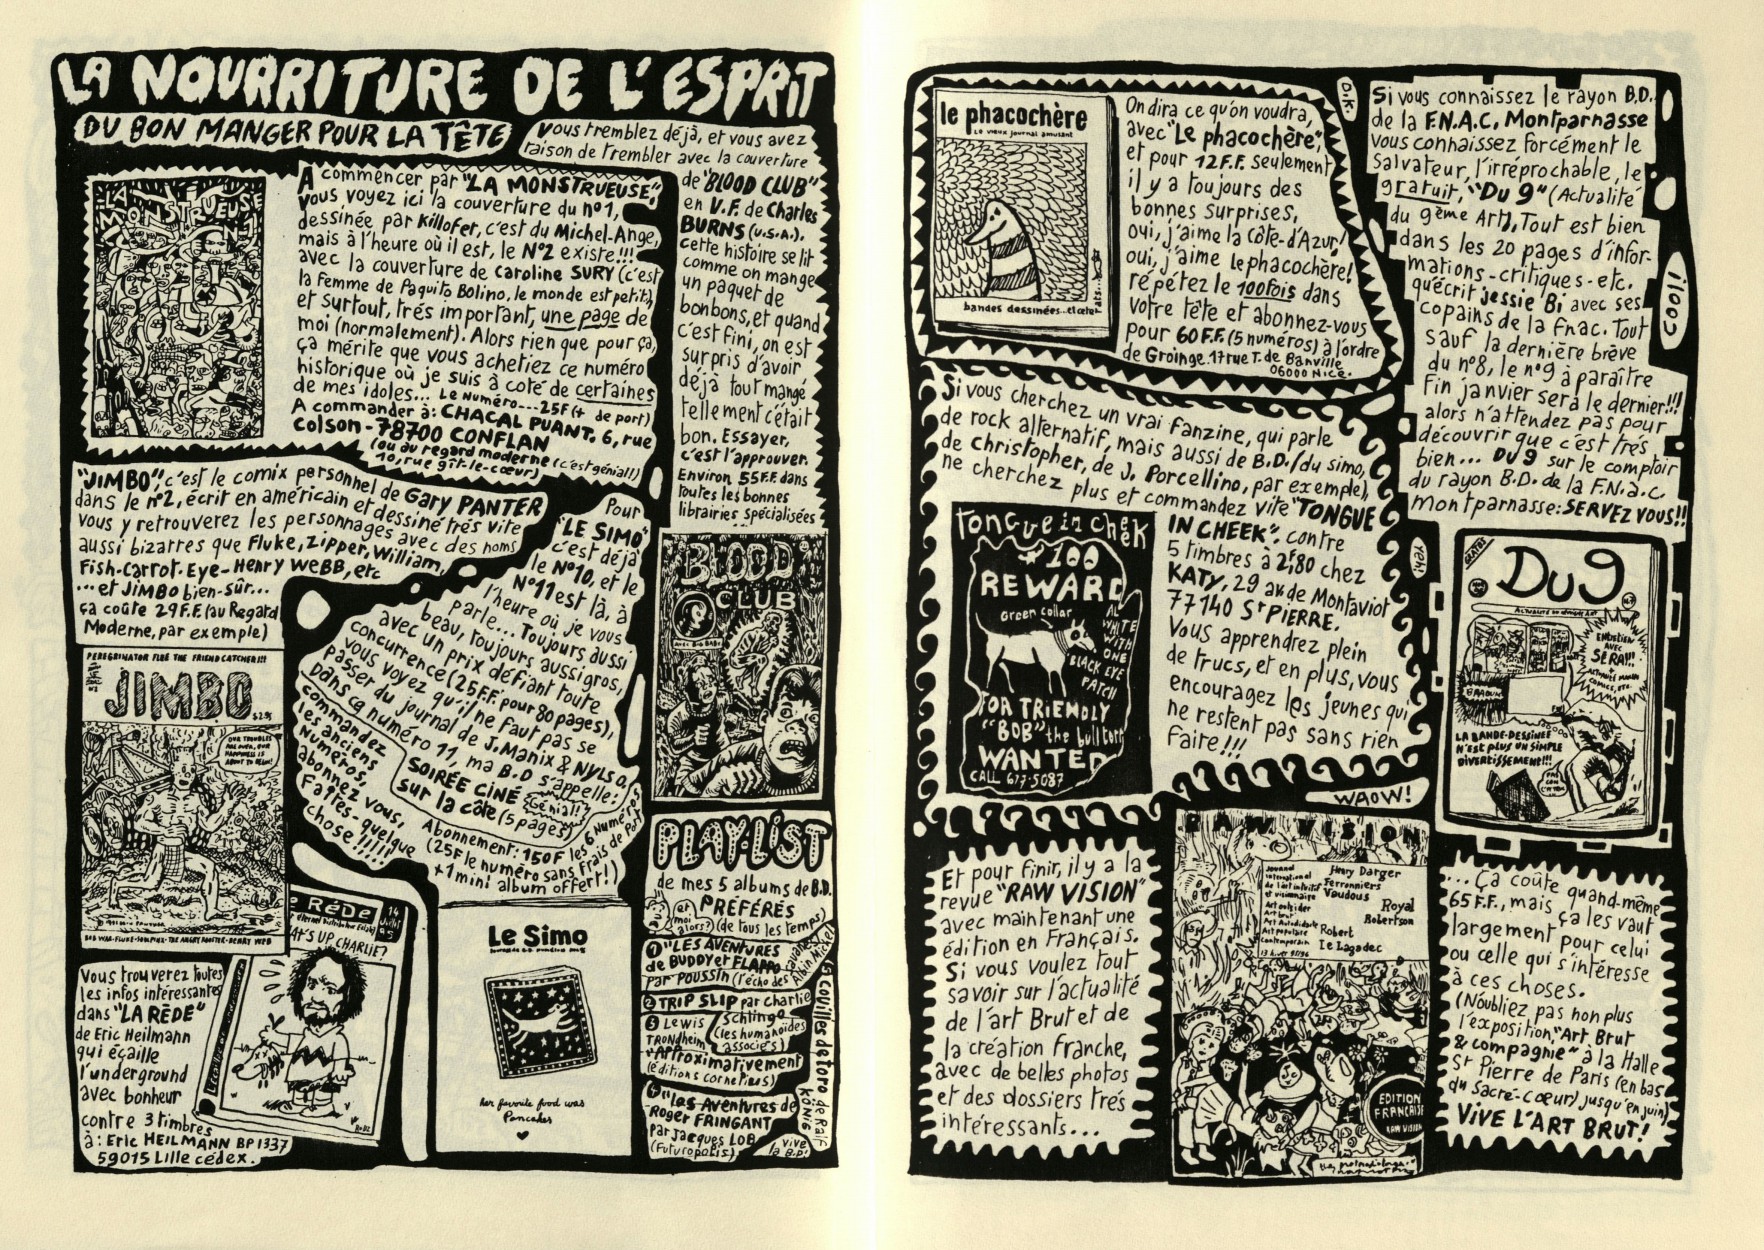 LA NOURRITURE DE L'ESPRIT
DU BON MANGER POUR LA TÊTE
A commencer par "LA MONSTRUEUSE",
vous voyez ici la couverture du n°1,
dessinée par Killofer, c'est du Michel-Ange,
mais à l'heure où il est, le N°2 existe!!!
avec la couverture de Caroline SURY (c'est
la femme de Paquito Bolino, le monde est petit),
et surtout, trés important, une page de
moi (normalement). Alors rien que pour ça,
ça mérite que vous achetiez ce numéro
historique où je suis à coté de certaines
de mes idoles... Le Numéro---25F (+ de port)
A commander à: CHACAL PUANT. 6, rue
Colson-78700 CONFLAN
(ou au regard moderne (c'est génial!)
10, rue gît-le-cœur)
LA MONSTRUEUSE
Vous tremblez déjà, et vous avez
raison de trembler avec la couverture
de "BLOOD CLUB"
en V.F. de Charles
BURNS (U.S.A.).
cette histoire se lit
comme on mange
un paquet de
bonbons, et quand
c'est fini, on est
surpris d'avoir
déjà tout mangé
tellement c'était
bon. Essayer,
c'est l'approuver.
Environ 55F.F. dans
toutes les bonnes
librairies spécialisées
BLOOD
CLUB
"JIMBO", c'est le comix personnel de Gary PANTER
dans le n°2, écrit en américain et dessiné trés vite
vous y retrouverez les personnages avec des noms
aussi bizarres que Fluke, Zipper, William,
Fish-Carrot-Eye-Henry WEBB, etc
...et JiMBO bien-sûr...
ça coûte 29F.F. (au Regard
Moderne, par exemple)
PEREGRINATOR FLEE THE FRIEND CATCHER!!!
JIMBO
$2.95
OUR TROUBLES
ARE OVER, OUR
HAPPINESS IS
ABOUT TO BEGIN!
Pour
"LE SIMO"
c'est déjà
le N°10, et le
N°11 est là, à
l'heure où je vous
parle... Toujours aussi
beau, toujours aussi gros,
avec un prix défiant toute
concurrence (25F.F. pour 80 pages),
vous voyez qu'il ne faut pas se
passer du journal de J. Manix & NYLSO,
Dans ça numéro 11, ma B.D s'appelle:
SOIRÉE CINÉ
sur la côte (5 pages)
Génial!
commandez
les anciens
Numéros,
abonnez vous,
Faites-quelque
chose!!!!!
Abonnement: 150F les 6 Numéros
(25F le numéro sans frais de Port
+1 mini album offert!)
Le Simo
her favorite food was
Pancakes
Vous trouverez toutes
les infos intéressantes
dans "LA RÈDE"
de Eric Heilmann
qui écaille
l'underground
avec bonheur
contre 3 timbres
à: Eric HEILMANN BP 1337
59015 Lille cédex.
PLAYLiST
de mes 5 albums de B.D.
PRÉFÉRÉS
(de tous les temps)
et
moi
alors?
1 "LES AVENTURES
de BUDDY et FLAPPO
par POUSSIN (l'écho des savanes
Albin Michel)
2 TRIP SLIP par charlie
Schlingo
(les humanoïdes
associés)
3 LEWIS
TRONdheim
"Approximativement"
(éditions cornélius)
4 "Les Aventures de
Roger FRINGANT
par Jacques LOB
(Futuropolis)
5 Couilles de toro de Ralf
KÖNIG
Vive
la B.D!
le phacochère
Le vieux journal amusant
bandes dessinées...et cætera
On dira ce qu'on voudra,
avec "Le phacochère",
et pour 12F.F. seulement
il y a toujours des
bonnes surprises,
oui, j'aime la Côte-d'Azur!
oui, j'aime le phacochère!
répétez le 100 fois dans
votre tête et abonnez-vous
pour 60F.F. (5 numéros) à l'ordre
de Groinge. 17 rue T. de Banville
06000 Nice.
O.K.
Si vous cherchez un vrai fanzine, qui parle
de rock alternatif, mais aussi de B.D. (du simo,
de Christopher, de J. Porcellino, par exemple),
ne cherchez plus et commandez vite "TONGUE
IN CHEEK", contre
5 timbres à 2f80 chez
KATY, 29 av de Montaviot
77140 St PIERRE.
Vous apprendrez plein
de trucs, et en plus, vous
encouragez les jeunes qui
ne restent pas sans rien
faire!!!
tongue in cheek
100
REWARD
Green collar
ALL
WHITE
WITH
ONE
BLACK EYE
PATCH
FOR FRIENDLY
"BOB" the bull terr
WANTED
CALL 677-5087
WAOW!
Si vous connaissez le rayon B.D.
de la F.N.A.C, Montparnasse
vous connaissez forcément le
salvateur, l'irréprochable, le
gratuit, "DU 9" (Actualité
du 9ème Art), Tout est bien
dans les 20 pages d'infor-
mations-critiques-etc.
qu'écrit jessie Bi avec ses
copains de la fnac. Tout
sauf la dernière brève
du n°8, le n°9 à paraître
Fin janvier sera le dernier!!!
alors n'attendez pas pour
découvrir que c'est très
bien... DU 9 sur le comptoir
du rayon B.D. de la F.N.a.C.
montparnasse: SERVEZ VOUS!!
COOL!
YEH!
GRATUIT
DU9
ENTRETIEN
AVEC
SERA!!!
LA BANDE-DESSINÉE
N'EST PLUS UN SIMPLE
DIVERTISSEMENT!!!
Et pour finir, il y a la
revue "RAW VISION"
avec maintenant une
édition en Français.
Si vous voulez tout
savoir sur l'actualité
de l'art Brut et de
la création franche,
avec de belles photos
et des dossiers trés
intéressants...
RAW VISION
Journal
international
de l'art intuitif
et visionnaire
Art outsider
Art brut
Art Autodidacte
Art populaire
contemporain
13 hiver 95/96
Henry Darger
Ferronniers
Vaudous
Royal
Robertson
Robert
Le Lagadec
EDITION
FRANCAISE
RAW VISION
...Ça coûte quand-même
65F.F., mais ça les vaut
largement pour celui
ou celle qui s'intéresse
à ces choses.
(N'oubliez pas non plus
l'exposition "Art Brut
& compagnie" à la Halle
St Pierre de Paris (en bas
du Sacré-cœur) jusqu'en juin)
VIVE L'ART BRUT!